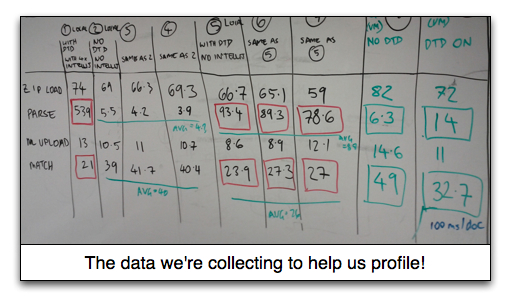 ① LOCAL ② LOCAL ③ ④ ⑤ LOCAL ⑥ (VM) (VM)
WITH DTD NO DTD NO INTELLIJ SAME AS 2 SAME AS 2 WITH DTD NO INTELLIJ SAME AS ⑤ SAME AS ⑤ NO DTD DTD ON
ZIP LOAD 74 69 66.3 69.3 66.7 65.1 59 82 72
PARSE 539 5.5 4.2 3.9 93.4 89.3 78.6 6.3 14
AVG = 4.9
UPLOAD 13 10.5 11 10.7 8.6 8.9 12.1 14.6 11
MATCH 21 39 41.7 40.4 23.9 27.3 27 49 32.7
AVG=40 AVG=26 100ms/doc
The data we're collecting to help us profile!